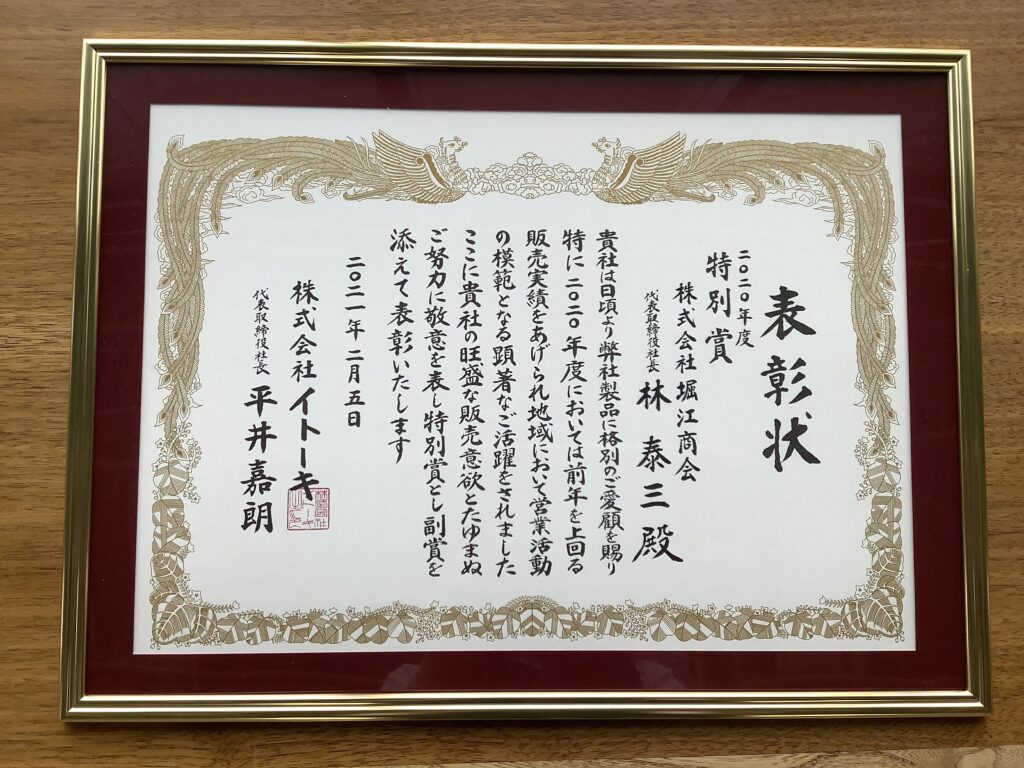 表彰状
二〇二〇年度
特別賞
株式会社 堀江商会
代表取締役社長 林 泰三 殿
貴社は日頃より弊社製品に格別のご愛顧を賜り
特に二〇二〇年度においては前年を上回る
販売実績をあげられ地域において営業活動
の模範となる顕著なご活躍をされました
ここに貴社の旺盛な販売意欲とたゆまぬ
ご努力に敬意を表し特別賞とし副賞を
添えて表彰いたします
二〇二一年二月五日
株式会社イトーキ
代表取締役社長 平井嘉朗